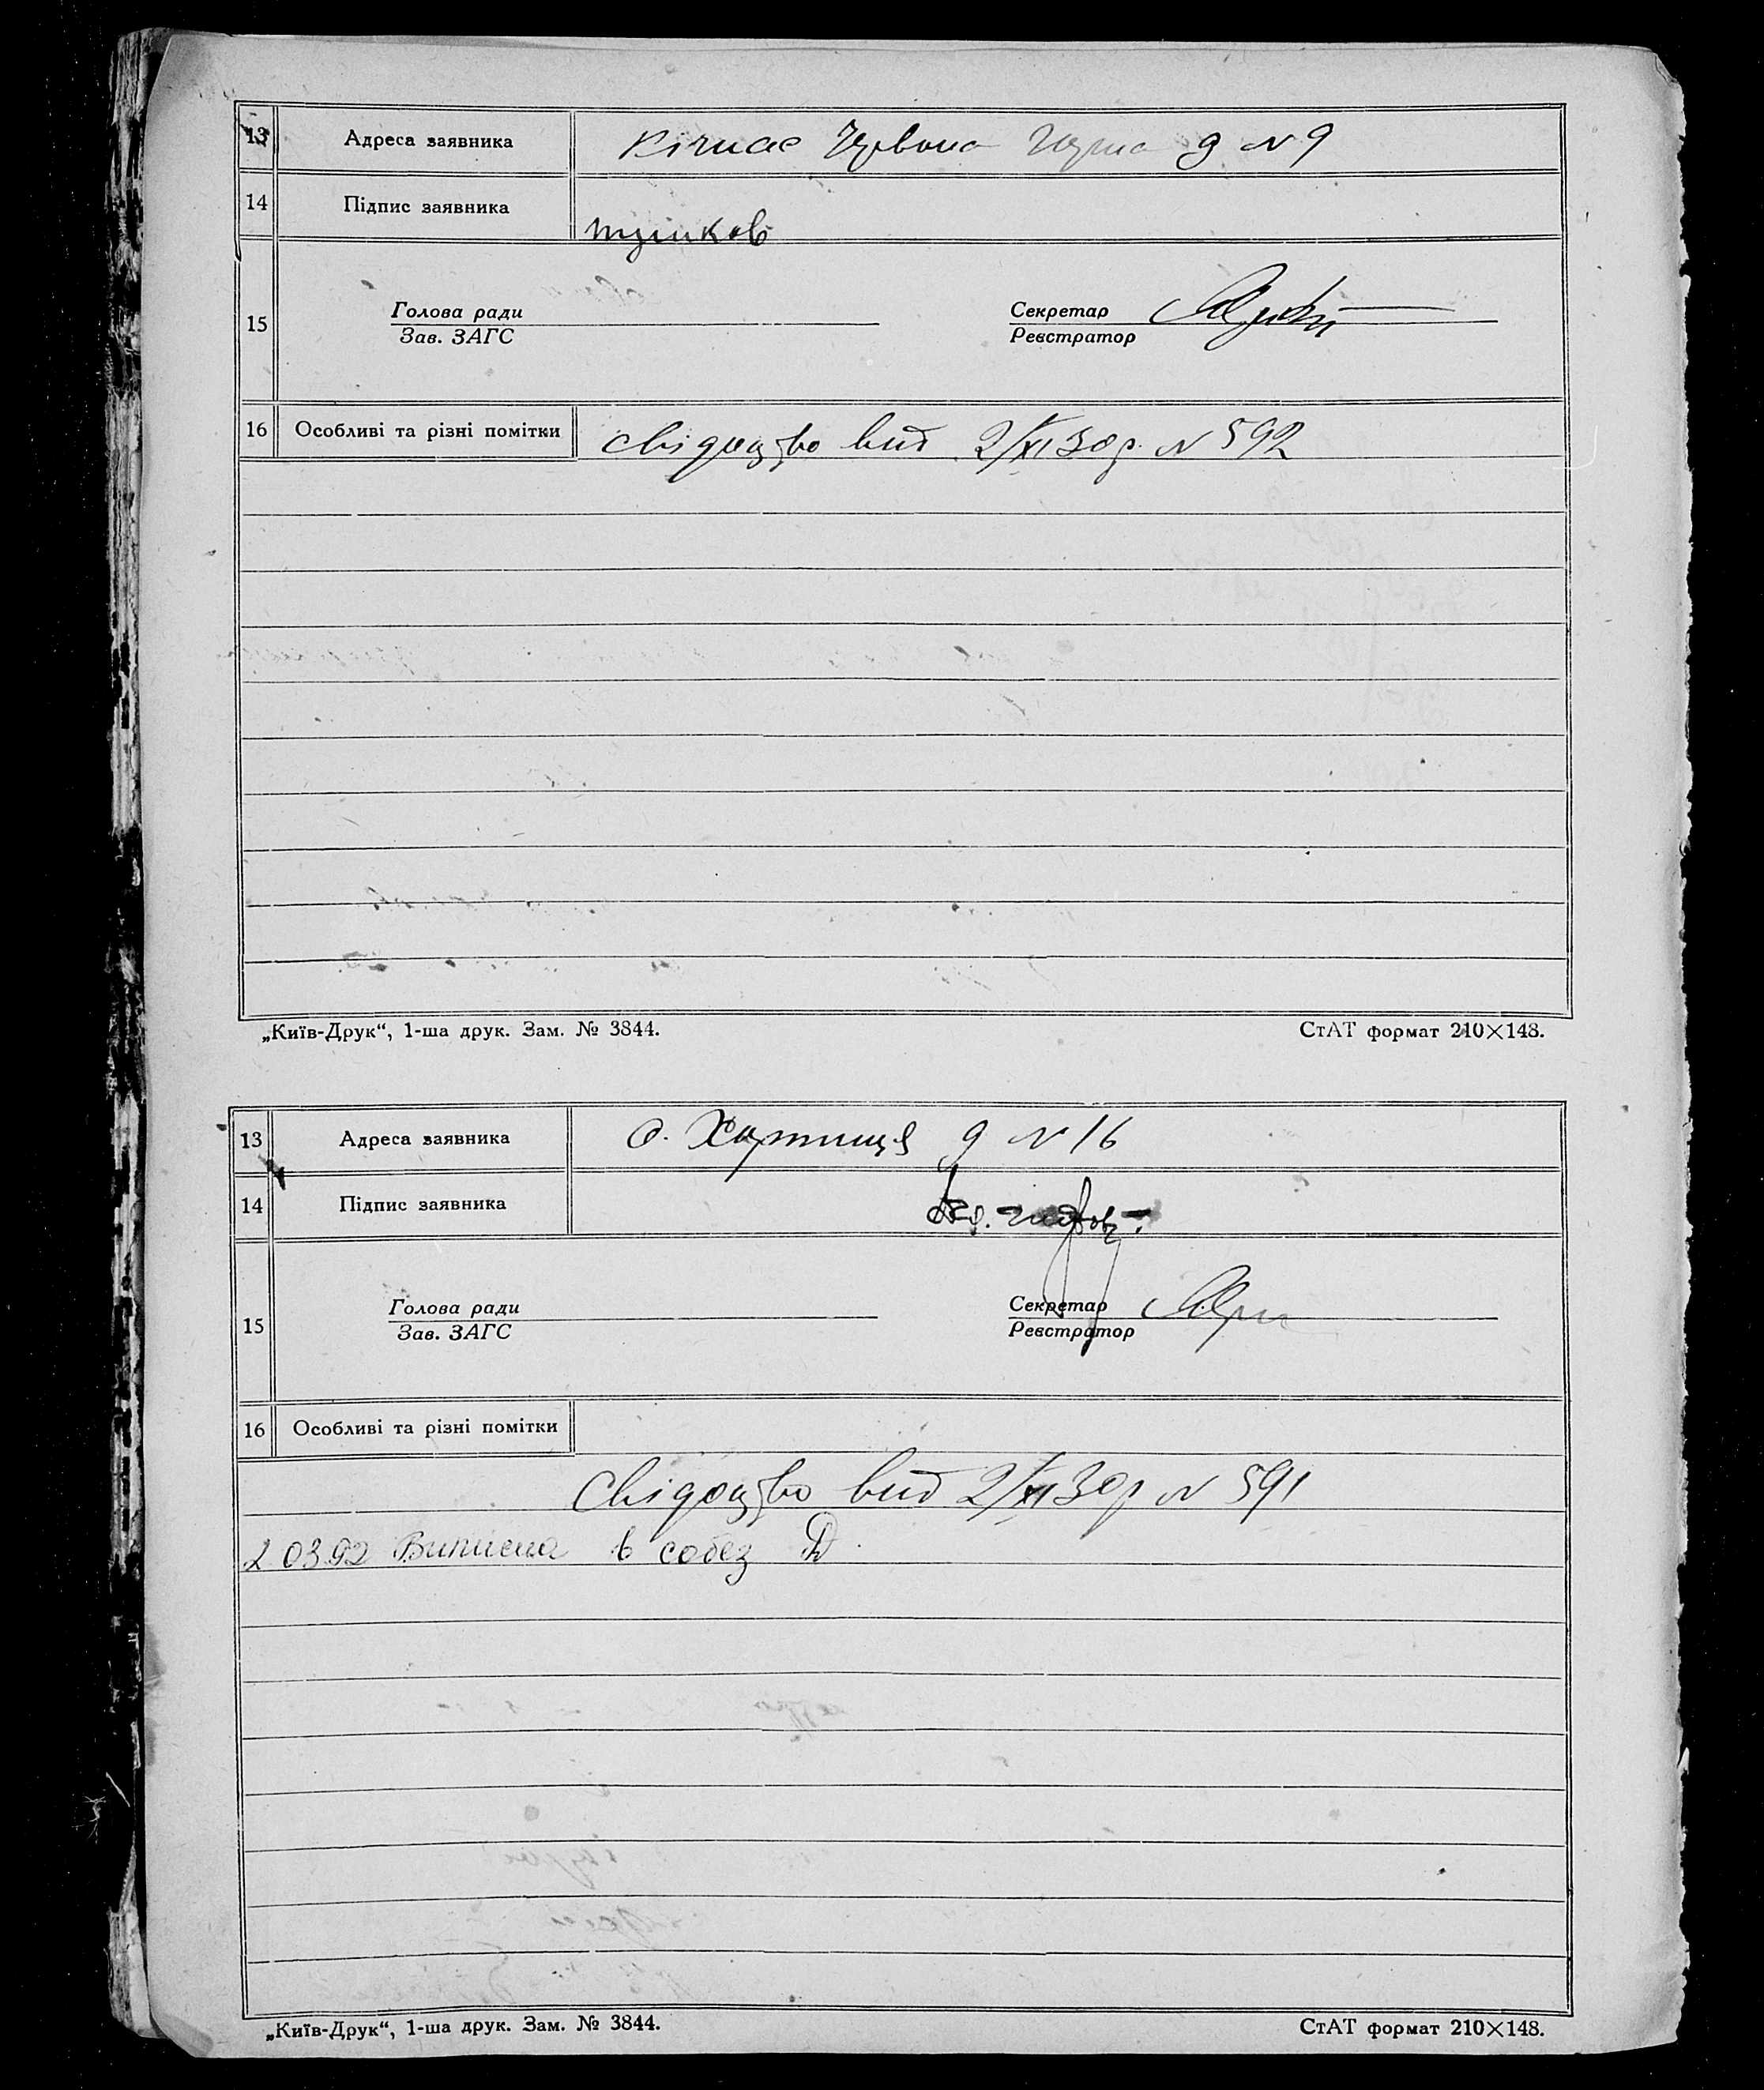 13 Адреса заявника Кічкас Червона д № 9
14 Підпис заявника
15 Голова ради Секретар
Зав. ЗАГС Реєстратор
16 Особливі та різні помітки свідоцтво вид 2/XI 30 р. № 592
„Київ-Друк“, 1-ша друк. Зам. № 3844. СтАТ формат 210×148.
13 Адреса заявника о. Хортиця д № 16
14 Підпис заявника
15 Голова ради Секретар
Зав. ЗАГС Реєстратор
16 Особливі та різні помітки
Свідоцтво вид 2/XI 30 р № 591
2 03.92 Виписка в собез
„Київ-Друк“, 1-ша друк. Зам. № 3844. СтАТ формат 210×148.